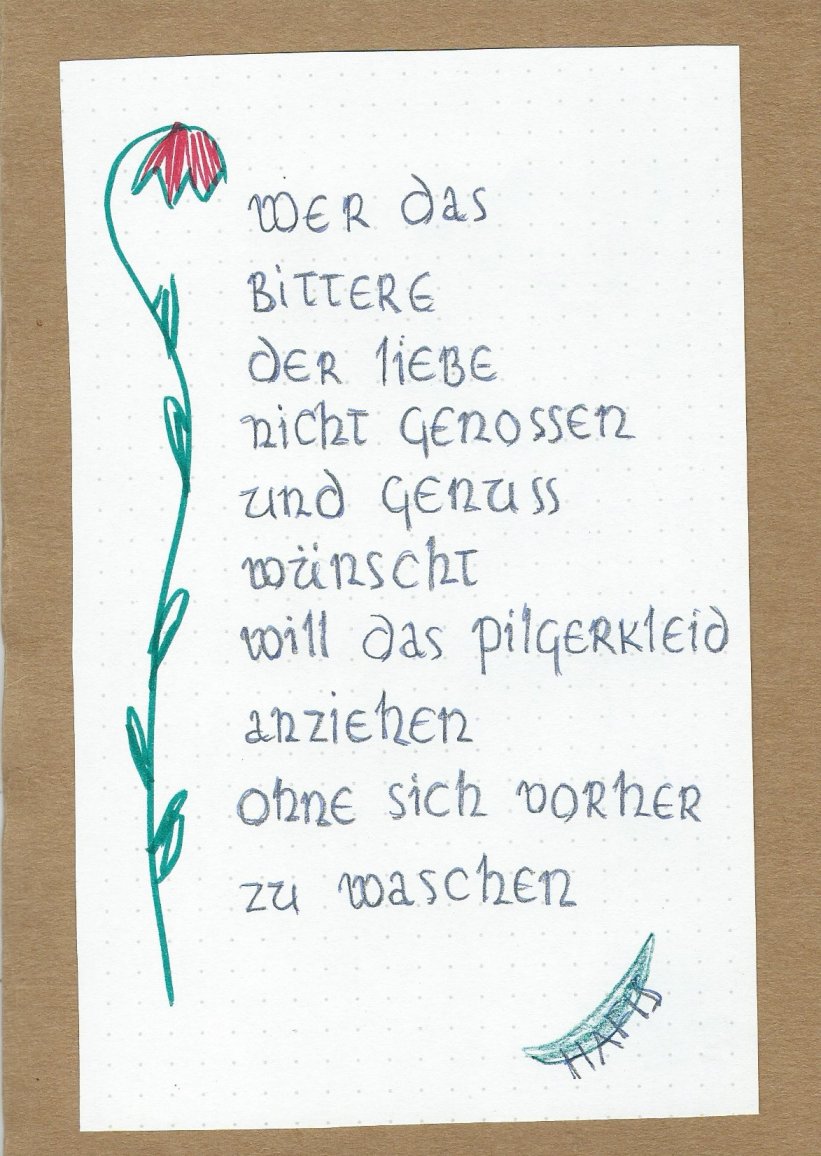 wer das
Bittere
der liebe
nicht genossen
und genuss
wünscht
will das pilgerkleid
anziehen
ohne sich vorher
zu waschen
HAFIS